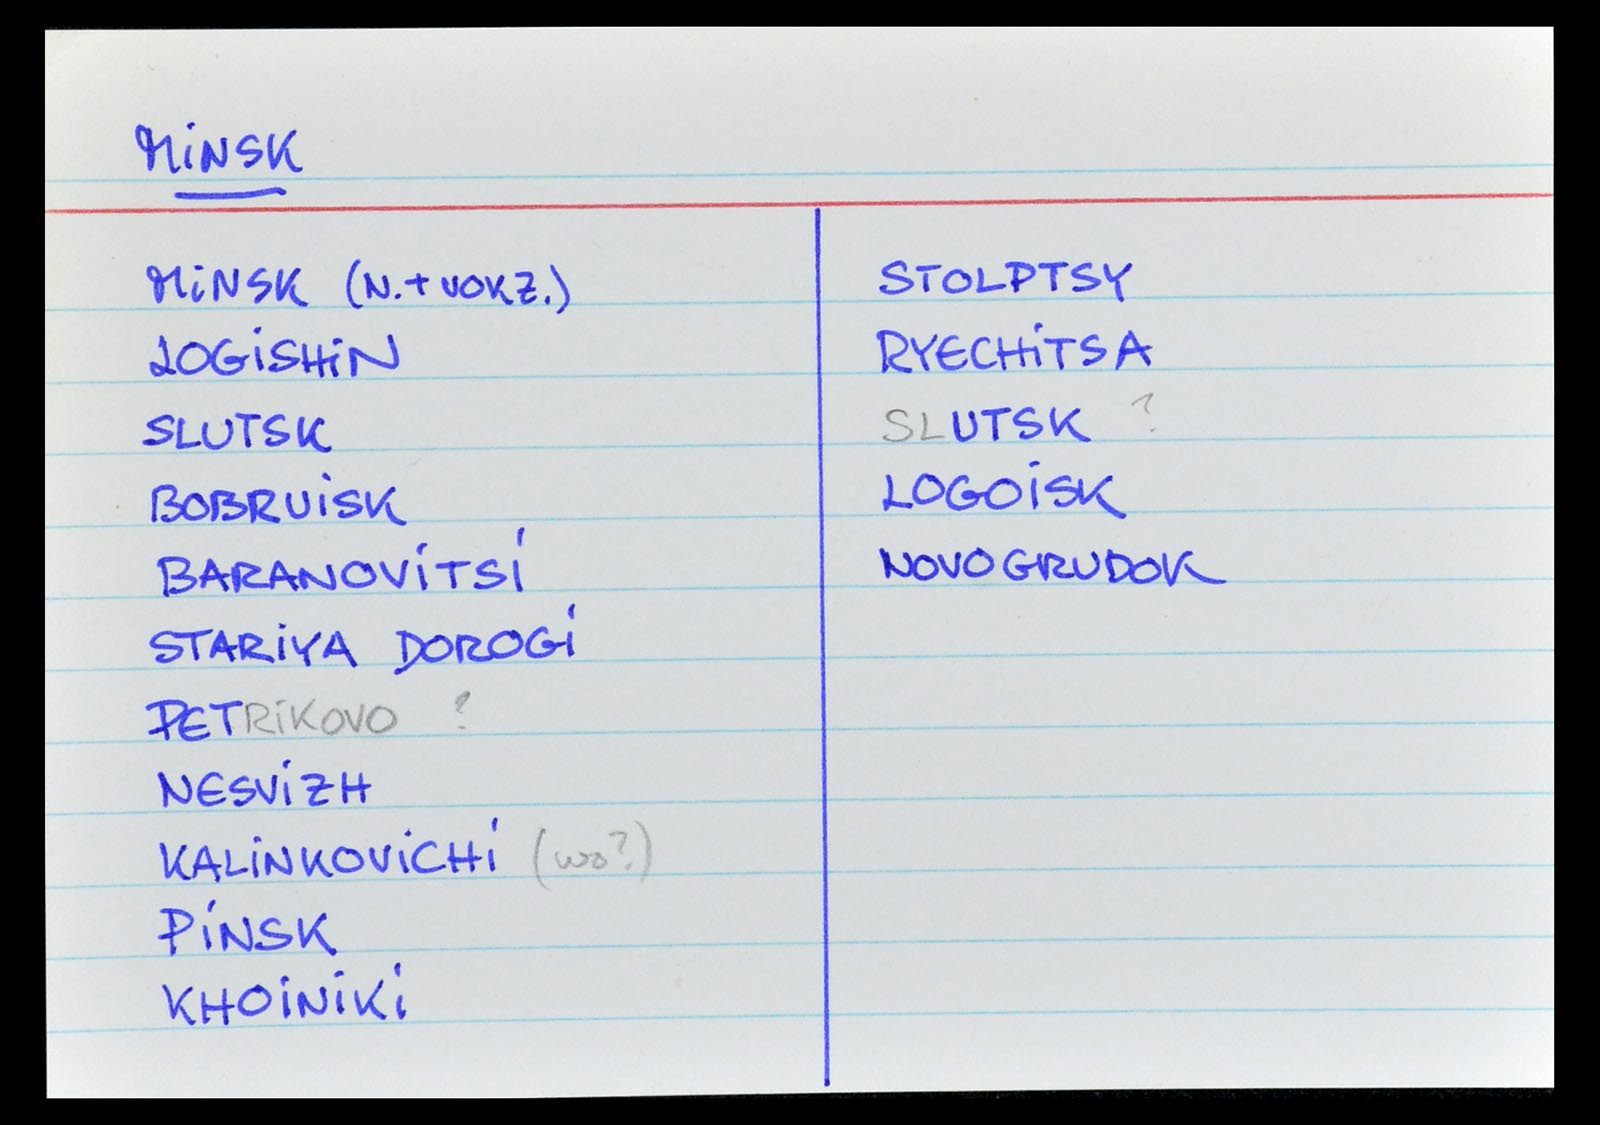 MINSK
MINSK (N.+VOKZ.)
LOGISHIN
SLUTSK
BOBRUISK
BARANOVITSI
STARIYA DOROGI
PETRIKOVO ?
NESVIZH
KALINKOVICHI (wo?)
PINSK
KHOINIKI
STOLPTSY
RYECHITSA
SLUTSK ?
LOGOISK
NOVOGRUDOK